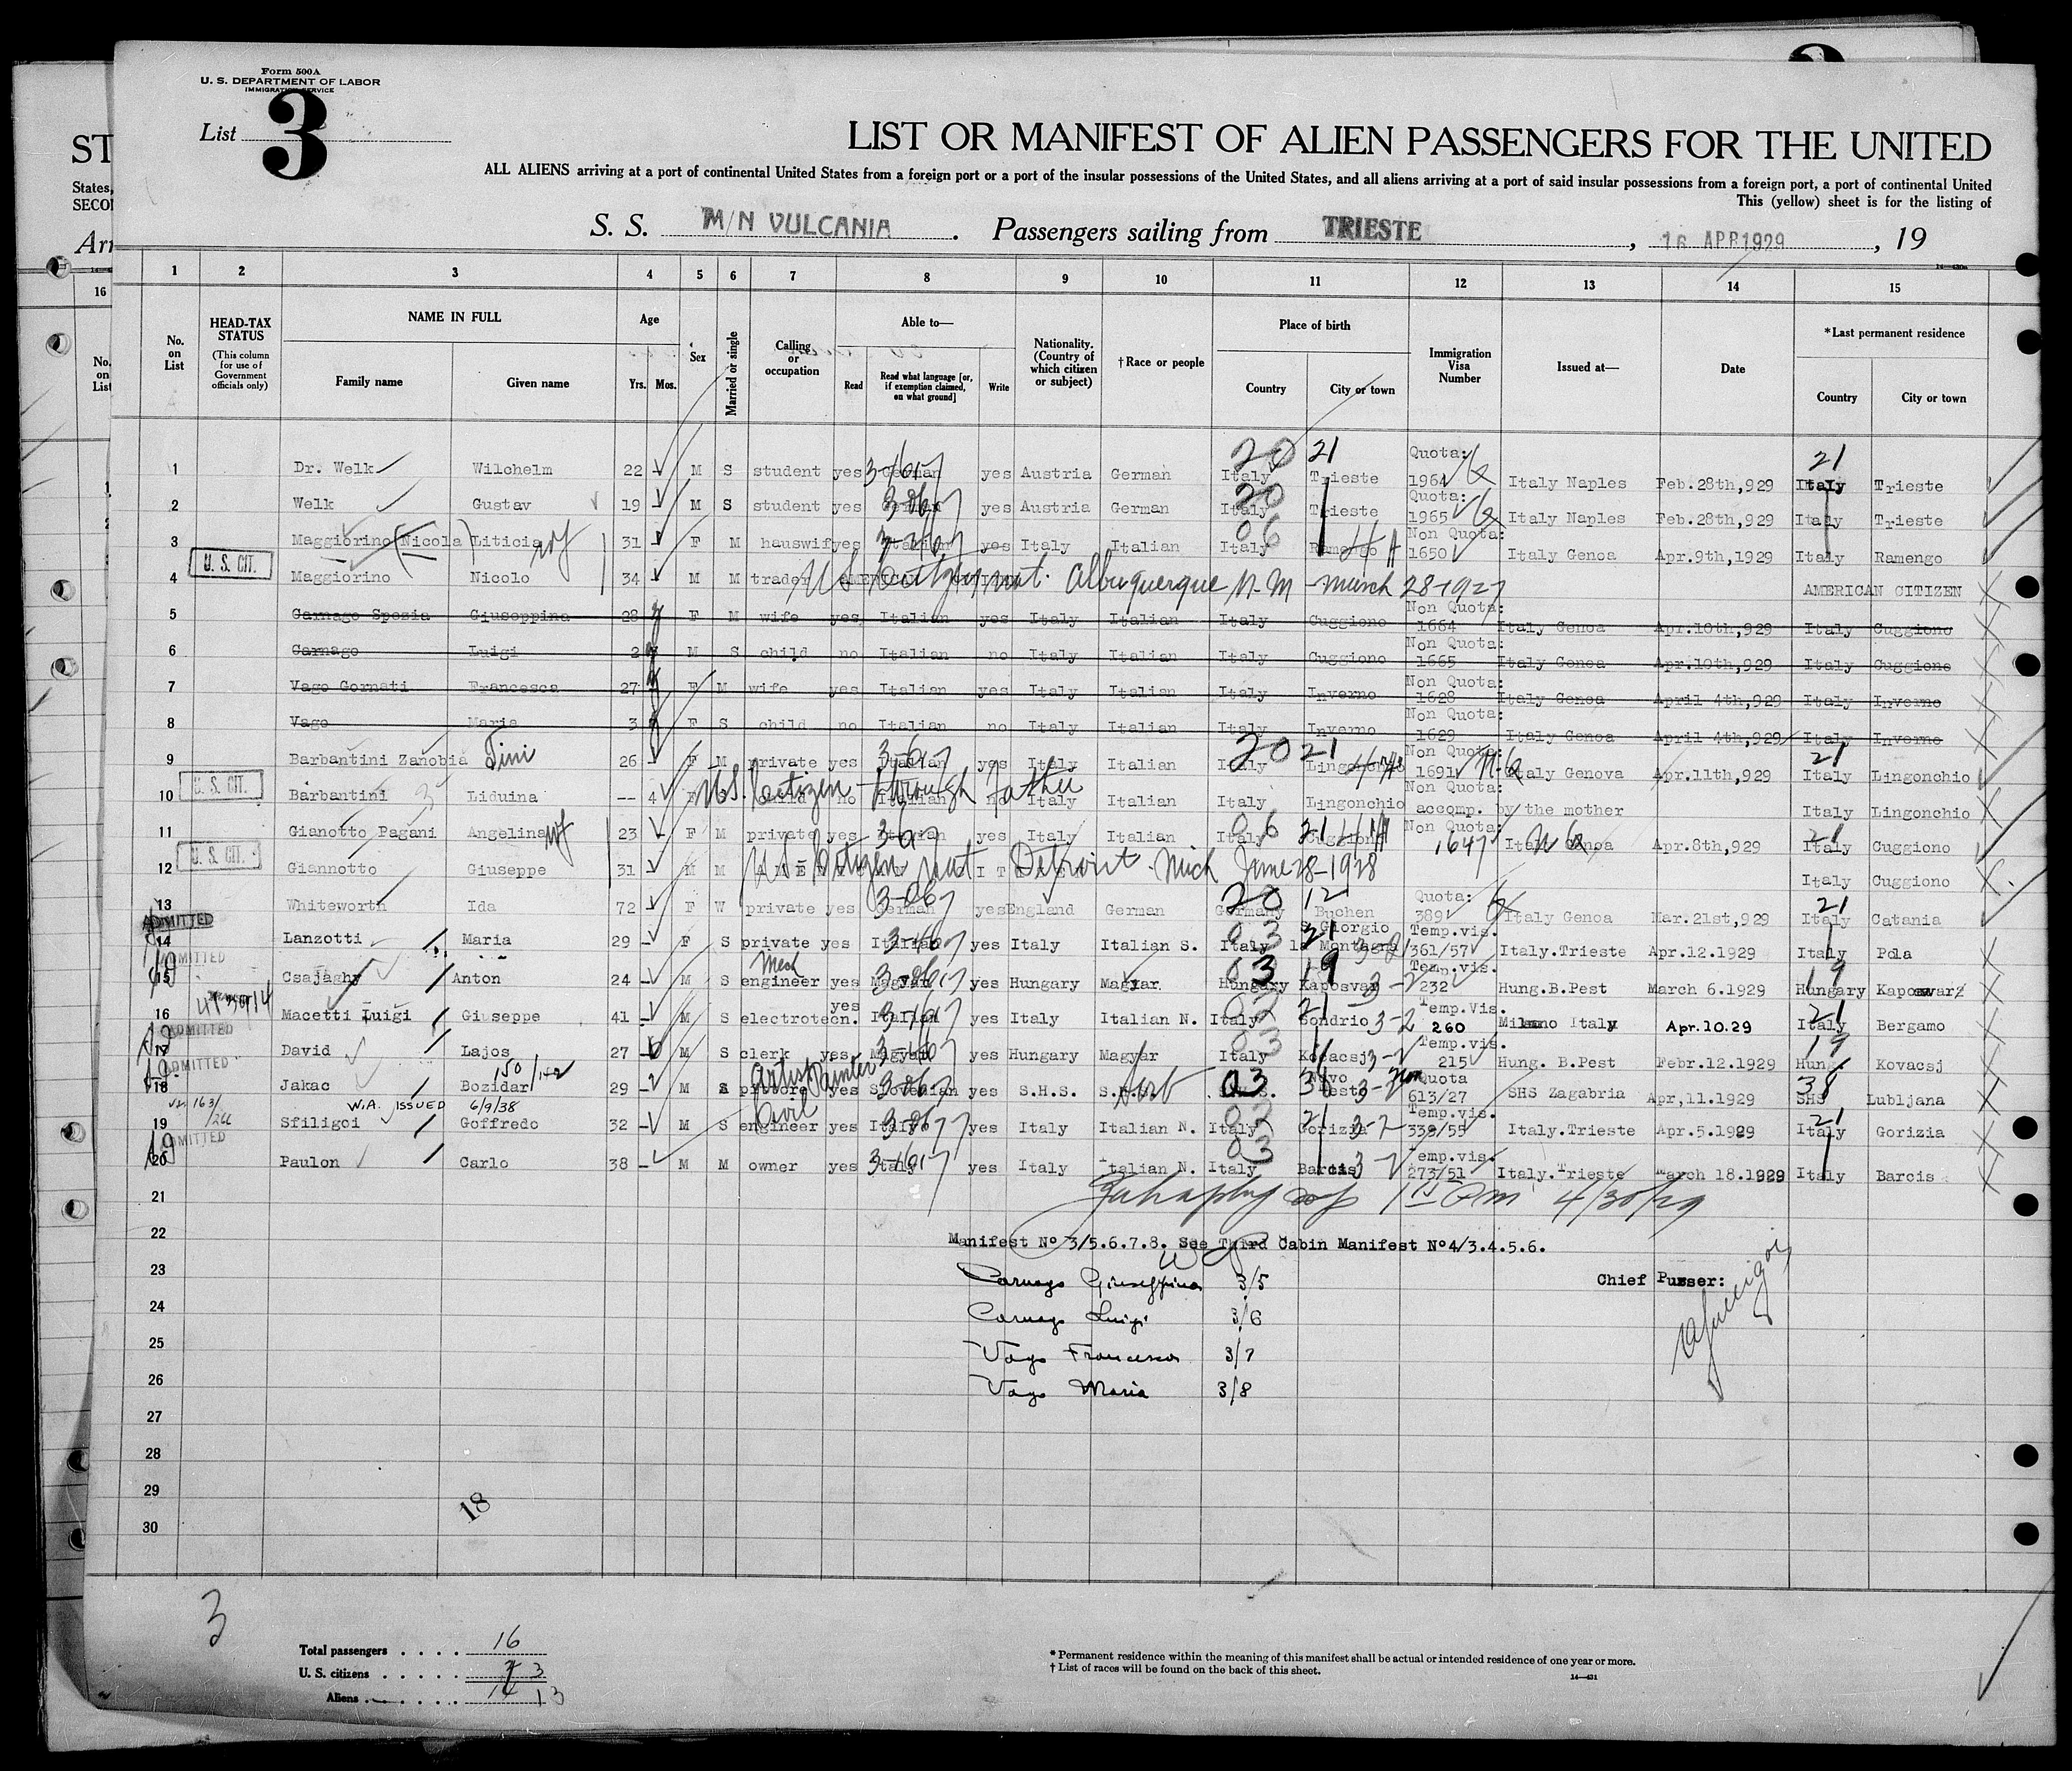 Form 500A
U. S. DEPARTMENT OF LABOR
IMMIGRATION SERVICE
List 3
LIST OR MANIFEST OF ALIEN PASSENGERS FOR THE UNITED
ALL ALIENS arriving at a port of continental United States from a foreign port or a port of the insular possessions of the United States, and all aliens arriving at a port of said insular possessions from a foreign port, a port of continental United
This (yellow) sheet is for the listing of
S. S. M/N VULCANIA . Passengers sailing from TRIESTE , 16 APR 1929 , 19
1 2 3 4 5 6 7 8 9 10 11 12 13 14 15
No. on List
HEAD-TAX STATUS (This column for use of Government officials only)
NAME IN FULL Family name Given name
Age Yrs. Mos.
Sex
Married or single
Calling or occupation
Able to— Read Read what language [or, if exemption claimed, on what ground] Write
Nationality. (Country of which citizen or subject)
†Race or people
Place of birth Country City or town
Immigration Visa Number
Issued at—
Date
*Last permanent residence Country City or town
1 Dr. Welk Wilchelm 22 M S student yes German yes Austria German Italy Trieste Quota: 1964 Italy Naples Feb.28th,929 Italy Trieste
2 Welk Gustav 19 M S student yes German yes Austria German Italy Trieste Quota: 1965 Italy Naples Feb.28th,929 Italy Trieste
3 Maggiorino (Nicola) Liticia wf 31 F M hauswif yes Italian yes Italy Italian Italy Ramengo Non Quota: 1650 Italy Genoa Apr.9th,1929 Italy Ramengo
U. S. CIT.
4 Maggiorino Nicolo 34 M M trader US Citizen nat. Albuquerque N. M - March 28-1927 AMERICAN CITIZEN
5 Garnago Spezia Giuseppina 28 F M wife yes Italian yes Italy Italian Italy Cuggiono Non Quota: 1664 Italy Genoa Apr.10th,929 Italy Cuggiono
6 Carnago Luigi 2 M S child no Italian no Italy Italian Italy Cuggiono Non Quota: 1665 Italy Genoa Apr.10th,929 Italy Cuggiono
7 Vago Gornati Francesca 27 F M wife yes Italian yes Italy Italian Italy Inverno Non Quota: 1628 Italy Genoa April 4th,929 Italy Inverno
8 Vago Maria 3 F S child no Italian no Italy Italian Italy Inverno Non Quota: 1629 Italy Genoa April 4th,929 Italy Inverno
9 Barbantini Zanobia Tini 26 F M private yes Italian yes Italy Italian Italy Lingonchio Non Quota: 1691 Italy Genova Apr.11th,929 Italy Lingonchio
U. S. CIT.
10 Barbantini Liduina -- 4 F US. Citizen through father child no Italian no Italy Italian Italy Lingonchio Non Quota: accomp. by the mother Italy Lingonchio
11 Gianotto Pagani Angelina wf 23 F M private yes Italian yes Italy Italian Italy Cuggiono Non Quota: 1647 Italy Genoa Apr.8th,929 Italy Cuggiono
U. S. CIT.
12 Giannotto Giuseppe 31 M M US Citizen nat Detroit Mich June 28-1928 Italy Cuggiono
13 Whiteworth Ida 72 F W private yes German yes England German Germany Buchen Quota: 389 Italy Genoa Mar.21st,929 Italy Catania
ADMITTED
14 Lanzotti Maria 29 F S private yes Italian yes Italy Italian S. Italy S.Giorgio la Montagna Temp.vis. 361/57 Italy.Trieste Apr.12.1929 Italy Pola
ADMITTED
15 Csajaghy Anton 24 M S Mech engineer yes Magyar yes Hungary Magyar Hungary Kaposvar Temp.vis. 232 Hung.B.Pest March 6.1929 Hungary Kaposvar
16 Macetti Luigi Giuseppe 41 M S electrotecn. yes Italian yes Italy Italian N. Italy Sondrio Temp.Vis. 260 Milano Italy Apr.10.29 Italy Bergamo
ADMITTED
17 David Lajos 27 M S clerk yes Magyar yes Hungary Magyar Italy Kovacsj Temp.vis. 215 Hung. B.Pest Febr.12.1929 Hung Kovacsj
ADMITTED
18 Jakac Bozidar 29 M S Artist Painter pittore yes Slovenian yes S.H.S. S.H.S. S.H.S. Novo Mesto Quota 613/27 SHS Zagabria Apr,11.1929 SHS Lubljana
W.A. ISSUED 6/9/38
19 Sfiligoi Goffredo 32 M S Civil engineer yes Italy yes Italy Italian N. Italy Gorizia Temp.vis. 339/55 Italy.Trieste Apr.5.1929 Italy Gorizia
ADMITTED
20 Paulon Carlo 38 M M owner yes Italy yes Italy Italian N. Italy Barcis Temp.vis. 273/51 Italy.Trieste March 18.1929 Italy Barcis
21 4/30/29
22 Manifest No 3/5.6.7.8. See Third Cabin Manifest No4/3.4.5.6.
23 Carnago Giuseppina 3/5 Chief Purser:
24 Carnago Luigi 3/6
25 Vago Francesca 3/7
26 Vago Maria 3/8
27
28
29
30
18
3
Total passengers . . . . 16
U. S. citizens . . . . . 3
Aliens . . . . . . 13
* Permanent residence within the meaning of this manifest shall be actual or intended residence of one year or more.
† List of races will be found on the back of this sheet.
14—431